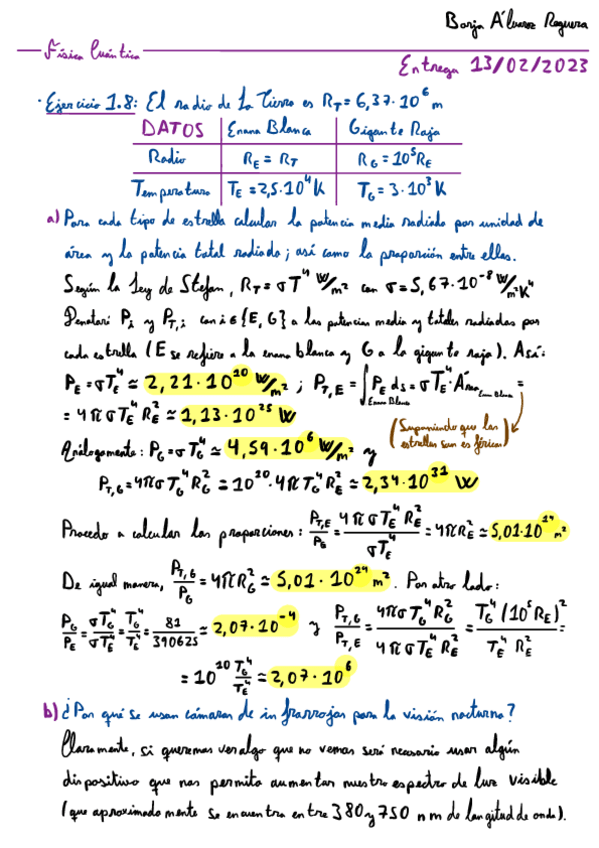 Borja Álvarez Reguera
Física Cuántica
Entrega 13/02/2023
· Ejercicio 1.8: El radio de La Tierra es R_T = 6,37·10⁶ m
DATOS | Enana Blanca | Gigante Roja
Radio | R_E = R_T | R_G = 10⁵R_E
Temperatura | T_E = 2,5·10⁴K | T_G = 3·10³K
a) Para cada tipo de estrella calcular la potencia media radiada por unidad de
área y la potencia total radiada; así como la proporción entre ellas.
Según la Ley de Stefan, R_T = σT⁴ W/m² con σ = 5,67·10⁻⁸ W/m²K⁴
Denotaré P_i y P_T,i con i ∈ {E, G} a las potencias media y totales radiadas por
cada estrella (E se refiere a la enana blanca y G a la gigante roja). Así:
P_E = σT_E⁴ ≃ 2,21·10¹⁰ W/m² ; P_T,E = ∫_Enana Blanca P_E ds = σT_E⁴·Área_Enana Blanca =
= 4πσT_E⁴ R_E² ≃ 1,13·10²⁵ W
(Suponiendo que las
estrellas son esféricas)
Análogamente: P_G = σT_G⁴ ≃ 4,59·10⁶ W/m² y
P_T,G = 4πσT_G⁴ R_G² = 10¹⁰·4πT_G⁴ R_E² ≃ 2,34·10³¹ W
Procedo a calcular las proporciones: P_T,E/P_E = 4πσT_E⁴ R_E²/σT_E⁴ = 4πR_E² ≃ 5,01·10¹⁴ m²
De igual manera, P_T,G/P_G = 4πR_G² ≃ 5,01·10²⁴ m². Por otro lado:
P_G/P_E = σT_G⁴/σT_E⁴ = T_G⁴/T_E⁴ = 81/390625 ≃ 2,07·10⁻⁴ y P_T,G/P_T,E = 4πσT_G⁴ R_G²/4πσT_E⁴ R_E² = T_G⁴(10⁵R_E)²/T_E⁴ R_E² =
= 10¹⁰ T_G⁴/T_E⁴ ≃ 2,07·10⁶
b) ¿Por qué se usan cámaras de infrarrojos para la visión nocturna?
Claramente, si queremos ver algo que no vemos será necesario usar algún
dispositivo que nos permita aumentar nuestro espectro de luz visible
(que aproximadamente se encuentra entre 380 y 750 nm de longitud de onda).